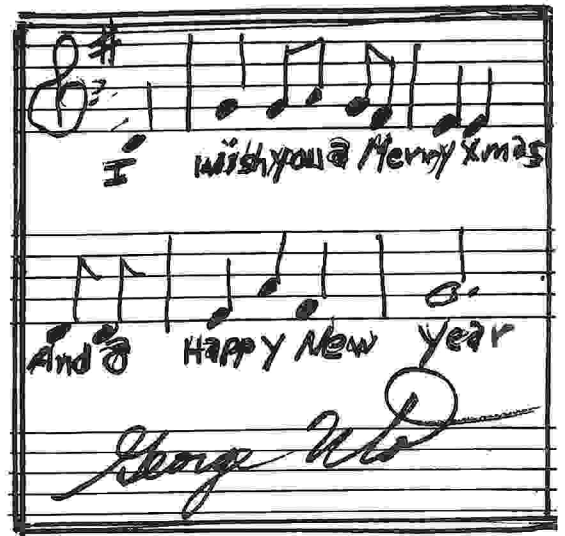 I wish you a Merry Xmas
And a Happy New Year
George